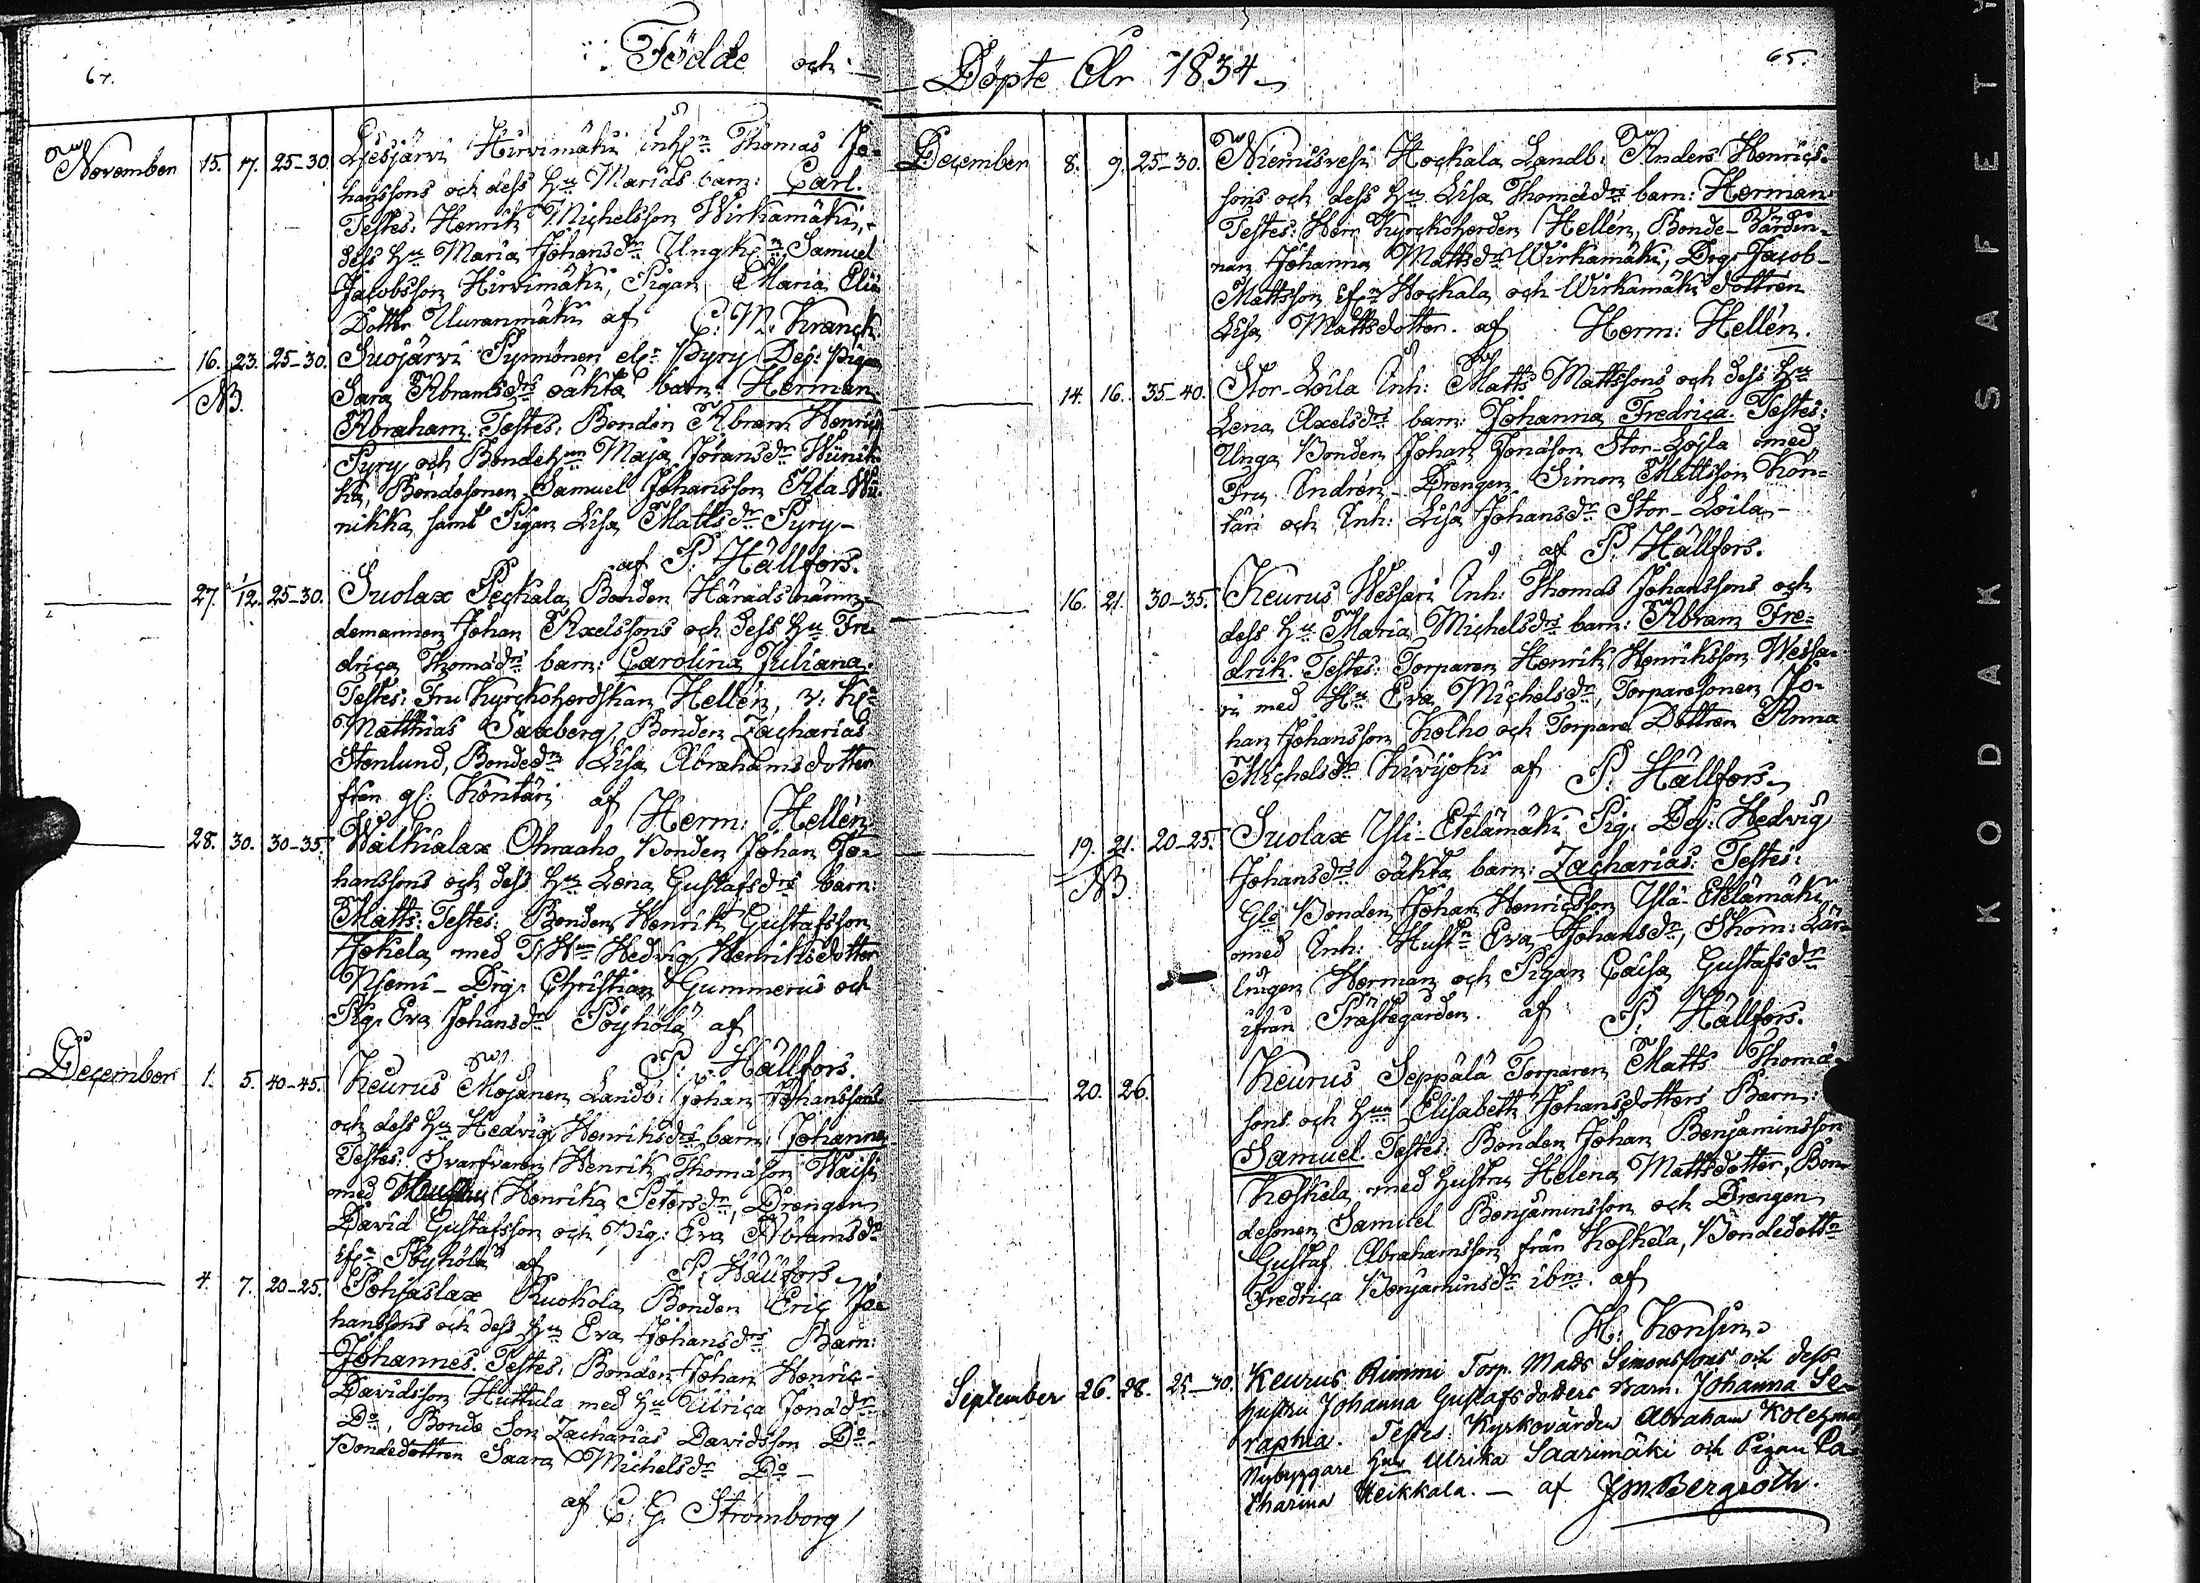 64.
Födde och
November 15. 17. 25-30. Hirvimäki Inhsn Thomas Jo-
hanssons och dess Hu Marias barn: Carl.
Testes: Henrik Michelsson Wirkamäki,
dess Hu Maria Johansdr Ungk: Samuel
Jacobsson Hirvimäki, Pigan Maria
Dottr Uuranmäki af C: M: Kranck
16. 23. 25-30. Suojärvi Pynnönen Pyry Dej: pigan
NB. Sara Abramsdrs oäkta barn: Herman
Abraham. Testes: Bonden Abram Henrics
Pyry och Bondehun Maja Joransdr Wiinik-
ka, Bondesonen Samuel Johansson Ala-Wii-
nikka samt Pigan Lisa Mattsdr Pyry-
af P. Hällfors.
27. 1/12. 25-30. Suolax Peckala Bonden Häradsnämn-
demannen Johan Axelssons och dess Hu Fre-
drica Thomædrs barn: Carolina Juliana.
Testes: Fru Kyrckoherdskan Hellén, v:
Matthias Saxberg, Bonden Zacharias
Stenlund, Bondedr Lisa Abrahamsdotter
från gl: Köntäri af Herm: Hellén.
28. 30. 30-35. Walkialax Ohraaho Bonden Johan Jo-
hanssons och dess Hu Lena Gustafsdrs barn:
Matts: Testes: Bonden Henrik Gustafsson
Jokela med Hun Hedvig Henriksdotter
Niemi- Drg: Christian Gummerus och
Pig: Eva Johansdr Pöyhölä af
P. Hällfors.
December 1. 5. 40-45. Keurus Mojanen Landb: Johan Johanssons
och dess Hu Hedvig Henriksdrs barn: Johanna
Testes: Svarfvaren Henrik Thomæson
med Hustru Henrika Petersdr, Drengen
David Gustafsson och Pig: Eva Abramsdr
Pöyhölä af P. Hällfors
4. 7. 20-25. Pohjaslax Ruokola Bonden Eric Jo-
hanssons och dess Hu Eva Johansdrs Barn:
Johannes. Testes: Bonden Johan Henric-
Davidsson Huttula med Hu Ulrica Jonædr
Do, Bonde Son Zacharias Davidsson Do-
Bondedottren Saara Michelsdr Do-
af C: G: Strömborg
65.
Döpte År 1834
December 8. 9. 25-30. Niemisvesi Hockala Landb: Anders Henrics-
sons och dess Hu Lisa Thomædrs barn: Herman
Testes: Herr Kyrckoherden Hellén, Bonde-Värdin-
nan Johanna Mattsdr Wirkamäki, Drg: Jacob
Mattsson Hockala och Wirkamäki dottren
Lisa Mattsdotter. af Herm: Hellén.
14. 16. 35-40. Stor-Loila Inh: Matts Mattssons och dess Hu
Lena Axelsdrs barn: Johanna Fredrica. Testes:
Unga Bonden Johan Jonæson Stor-Loila med
Fru Drengen Simon Mattsson Kön-
täri och Inh: Lisa Johansdr Stor-Loila-
af P. Hällfors.
16. 21. 30-35. Keurus Wessari Inh: Thomas Johanssons och
dess Hu Maria Michelsdrs barn: Abram Fre-
drik. Testes: Torparen Henrik Henriksson Wessa-
ri med Hu Eva Michelsdr, Torparesonen Jo-
han Johansson Kolho och Torpare Dottren Anna
Michelsdr Kivijoki af P: Hällfors
19. 21. 20-25. Suolax Yli-Etelämäki Pig: Dej: Hedvig
NB Johansdrs oäkta barn: Zacharias: Testes:
Glg Bonden Johan Henricsson Yli-Etelämäki
med Inh: Hustn Eva Johansdr, Skom: Lär-
lingen Herman och Pigan Caisa Gustafsdr
ifrån Prästegården. af P. Hällfors.
20. 26. Keurus Seppälä Torparen Matts Thomæ-
sons och Hun Elisabeth Johansdotters Barn:
Samuel. Testes: Bonden Johan Benjaminsson
Koskela med hustru Helena Mattsdotter, Bon-
desonen Samuel Benjaminsson och Drengen
Gustaf Abrahamsson från Koskela, Bondedottn
Fredrica Benjaminsdr ibm. af
H: Konsin
September 26. 28. 25-30. Keurus Rimmi Torp. Mads Simonssons och dess
hustru Johanna Gustafsdotters Barn: Johanna Se-
raphia. Testes: Kyrkovärden Abraham
Nybyggare Hun Ulrika Saarimäki och Pigan Ca-
tharina Heikkala. - af J M Bergroth.
KODAK SAFETY